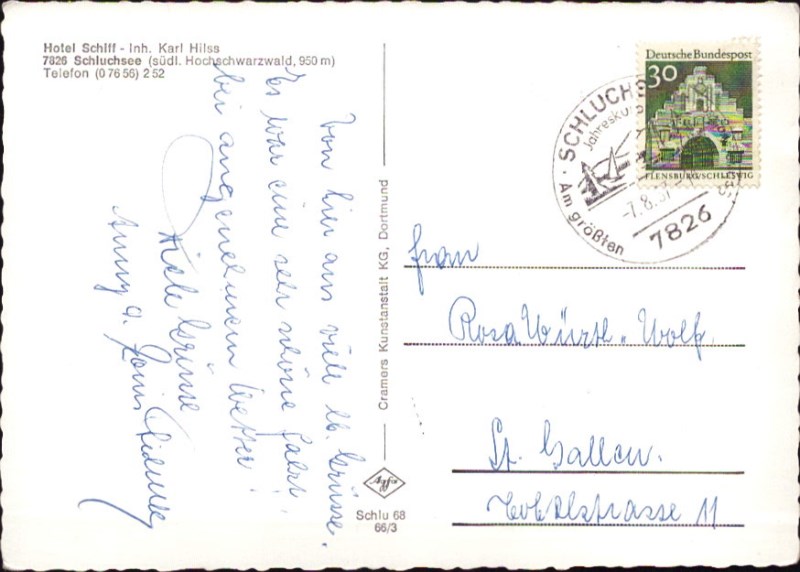 Hotel Schiff - Inh. Karl Hilss
7826 Schluchsee (südl. Hochschwarzwald, 950 m)
Telefon (0 76 56) 2 52
Von hier aus viele lb. Grüsse.
Es war eine sehr schöne Fahrt,
bei angenehmem Wetter!
Viele Grüsse
Anny u.
Cramers Kunstanstalt KG, Dortmund
Schlu 68
66/3
Deutsche Bundespost
30
FLENSBURG/SCHLESWIG
SCHLUCHS
Am größten
-7.8.67
7826
Frau
Rosa Würth-Wolf.
St. Gallen.
11